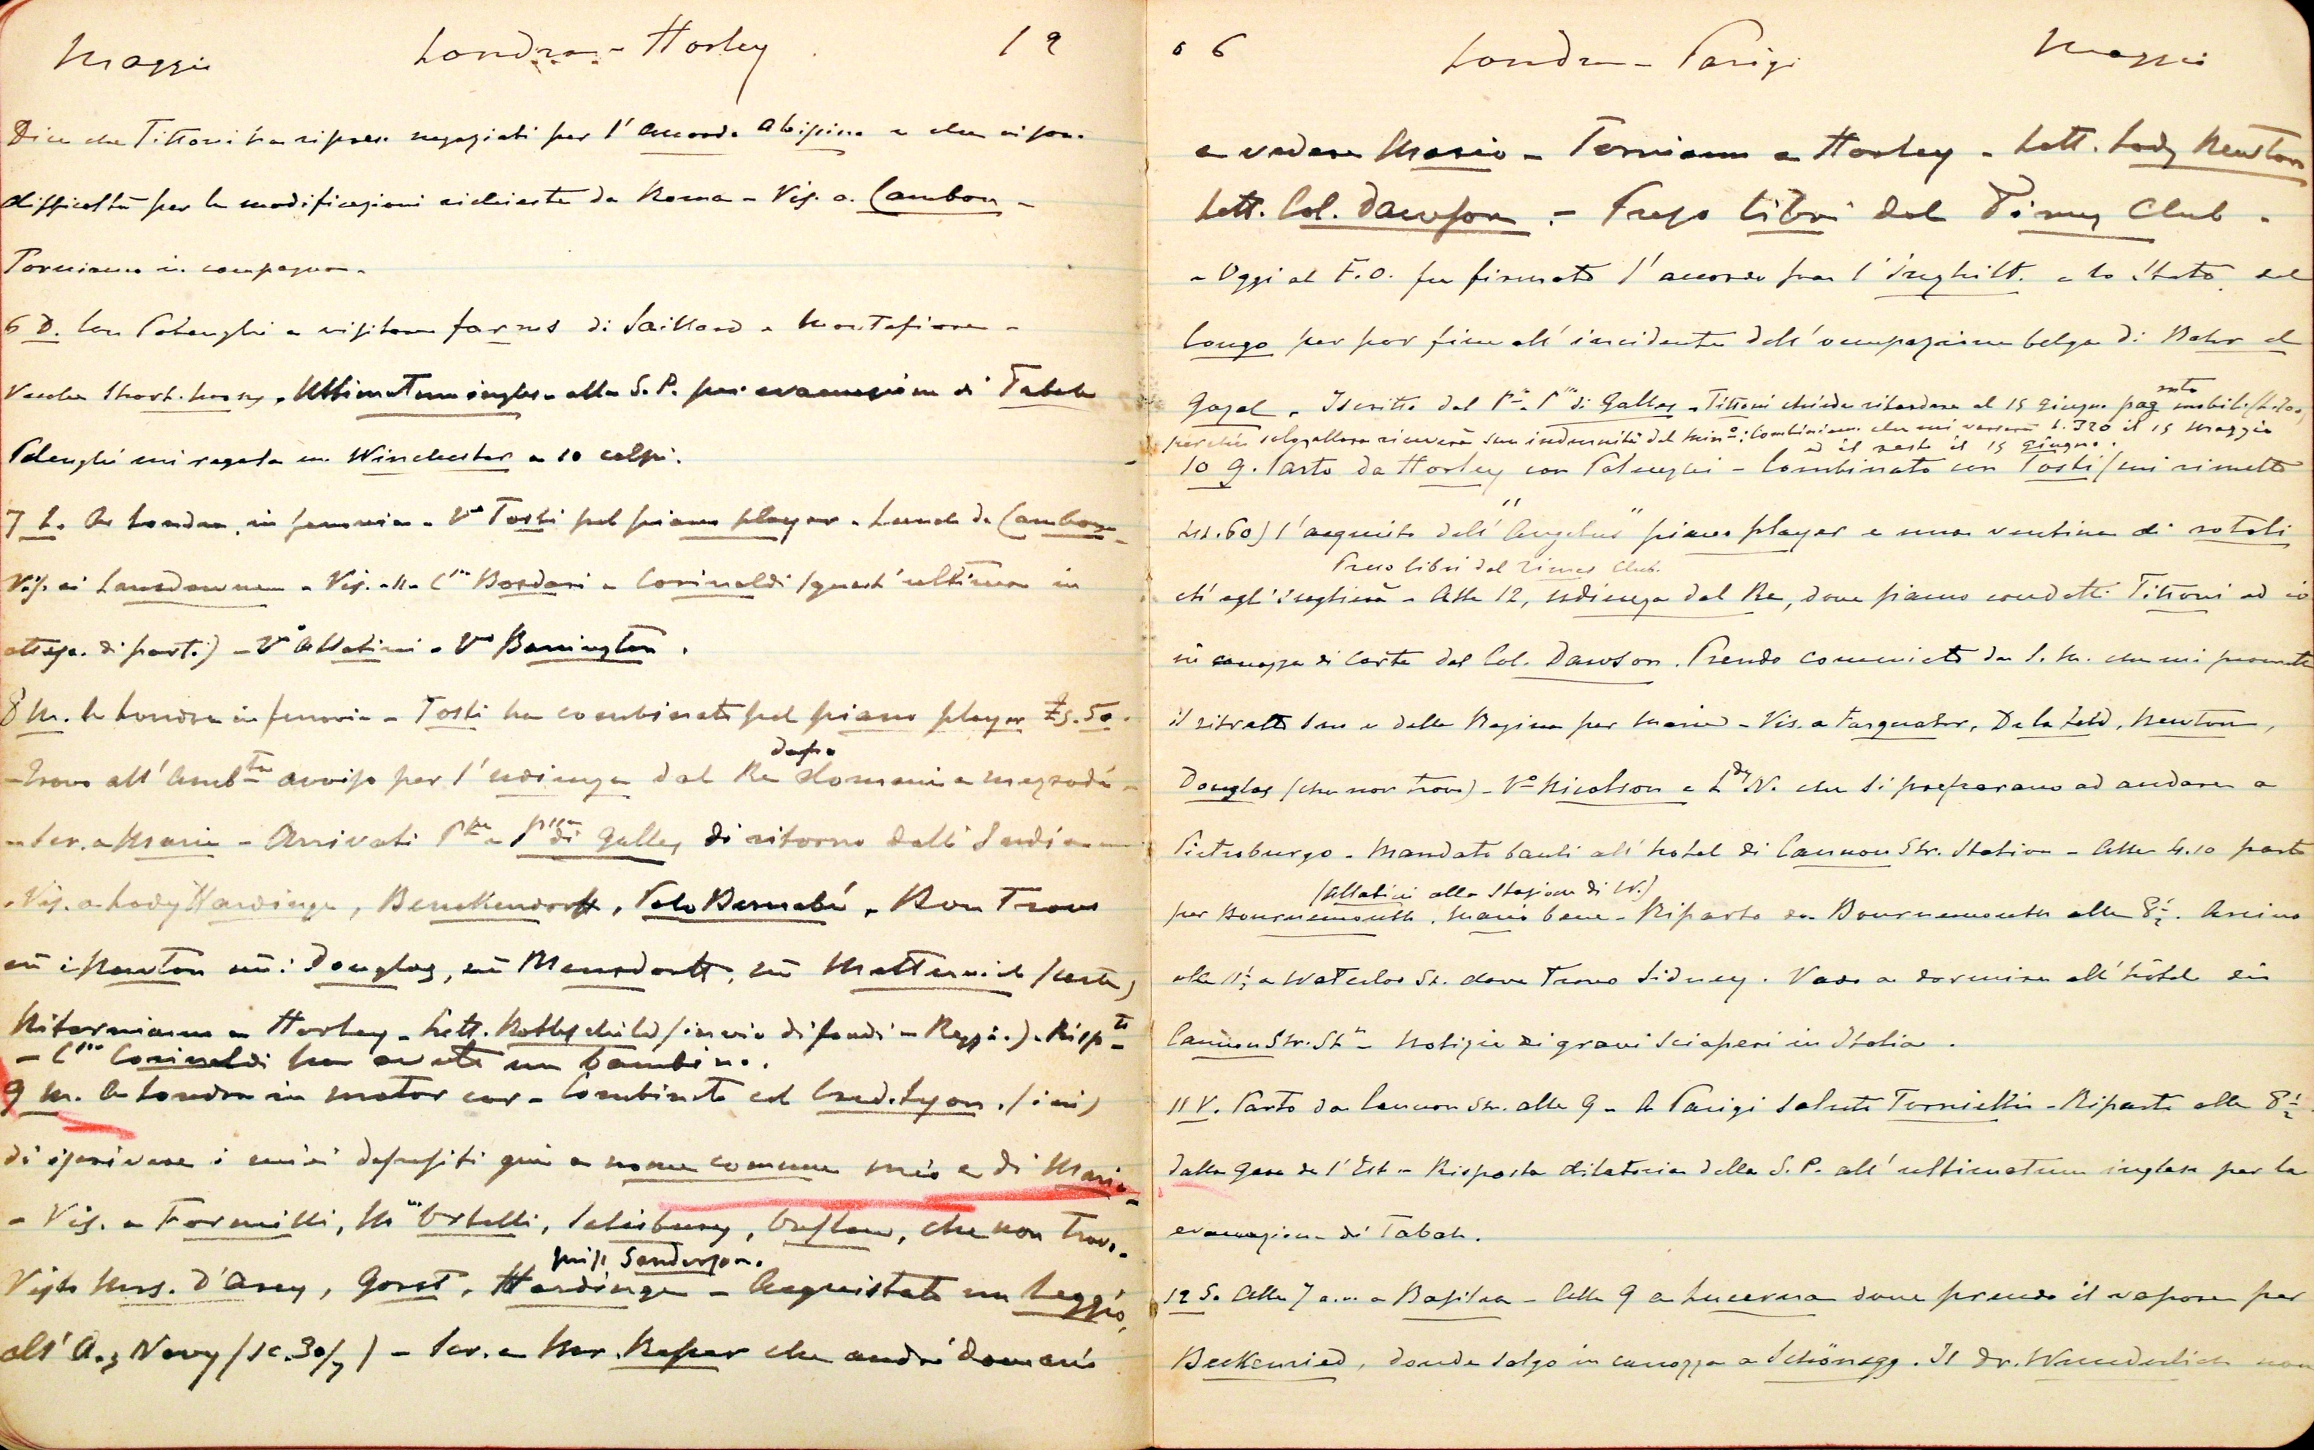 Maggio Londra - Horley 19
Dice che Tittoni ha ripreso negoziati per l'accordo Abissino e che vi sono
difficoltà per le modificazioni richieste da Roma - Vis. a Cambon -
Torniamo in campagna -
6 D. Con Polenghi a visitare farms di Saillard e Montefiore -
Vacche Short-horns. Ultimatum inglese alla S. P. per evacuazione di Tabah
Polenghi mi regala un Winchester a 10 colpi.
7 L. A Londra in ferrovia - Vo Tosti pel piano player - Lunch da Cambon -
Vis. ai Lansdowne - Vis. alla Cssa Bordari e Corinaldi (quest'ultima in
attesa di parto) - Vo Allatini - Vo Barrington.
8 M. A Londra in ferrovia - Tosti ha combinato pel piano player Ls. 50.
- Trovo all'Ambta avviso per l'udienza dal Re dopo domani a mezzodì -
- Scr. a Maria - Arrivati Ppe e Pssa di Galles di ritorno dall'India
- Vis. a Lady Hardinge, Benckendorff, Polo Bernabé. Non trovo
nè i Newton nè i Douglas, nè Mensdorff, nè Metternich (carte)
Ritorniamo a Horley - Lett. Rothschild (invio di fondi - Reggia.) - Rispta
- Cssa Corinaldi ha avuto un bambino.
9 M. A Londra in motor car - Combinato col Cred. Lyon. (ivi)
di iscrivere i miei depositi qui a nome comune mio e di Maria -
- Vis. a Formilli, Mme Ortelli, Salisbury, Onslow, che non trovo -
miss Sanderson.
Visto Mrs. D'Arcy, Gorst, Hardinge - Acquistato un leggio,
all'A. & Navy (Sc. 30/7) - Scr. a Mr. Raper che andrò domani
06 Londra - Parigi Maggio
a vedere Mario - Torniamo a Horley - Lett. Lady Newton
Lett. Col. Dawson - Preso libri dal Times Club -
- Oggi al F. O. fu firmato l'accordo fra l'Inghilt. e lo Stato del
Congo per por fine all'incidente dell'occupazione belga di Bahr el
Gazal. Iscritto dal Pe e Pssa di Galles - Tittoni chiede ritardare al 15 giugno pag mobili
perchè solo allora riceverà sua indennità dal Mino: Combiniamo che mi verserà L. 320 il 15 maggio
ed il resto il 15 giugno.
10 G. Parto da Horley con Polenghi - Combinato con Tosti (mi rimette
Ls. 60) l'acquisto dell' "Angelus" piano player e una ventina di rotoli
Preso libri dal Times Club.
ch'egli sceglierà - Alle 12, udienza dal Re, dove siamo condotti Tittoni ed io
in carrozza di Corte dal Col. Dawson. Prendo comiato da S. M. che mi promette
il ritratto Suo e della Regina per Maria - Vis. a Farquahr, Newton,
Douglas (che non trovo) - Vo Nicolson e Ldy N. che si preparano ad andare a
Pietroburgo - Mandato bauli all'hotel di Cannon Str. Station - Alle 4.10 parto
(Allatini alla Stazione di W.)
per Bournemouth. Mario bene - Riparto da Bournemouth alle 8½. Arrivo
alle 11½ a Waterloo St. dove trovo Sidney. Vado a dormire all'hôtel di
Cannon Str. Stn - Notizie di gravi scioperi in Italia.
11 V. Parto da Cannon Str. alle 9 - A Parigi saluto Tornielli - Riparto alle 8½
dalla gare de l'Est - Risposta dilatoria della S. P. all'ultimatum inglese per la
evacuazione di Tabah.
12 S. Alle 7 a.m. a Basilea - Alle 9 a Lucerna dove prendo il vapore per
Beckenried, donde salgo in carrozza a Schönegg. Il dr. Wunderlich non